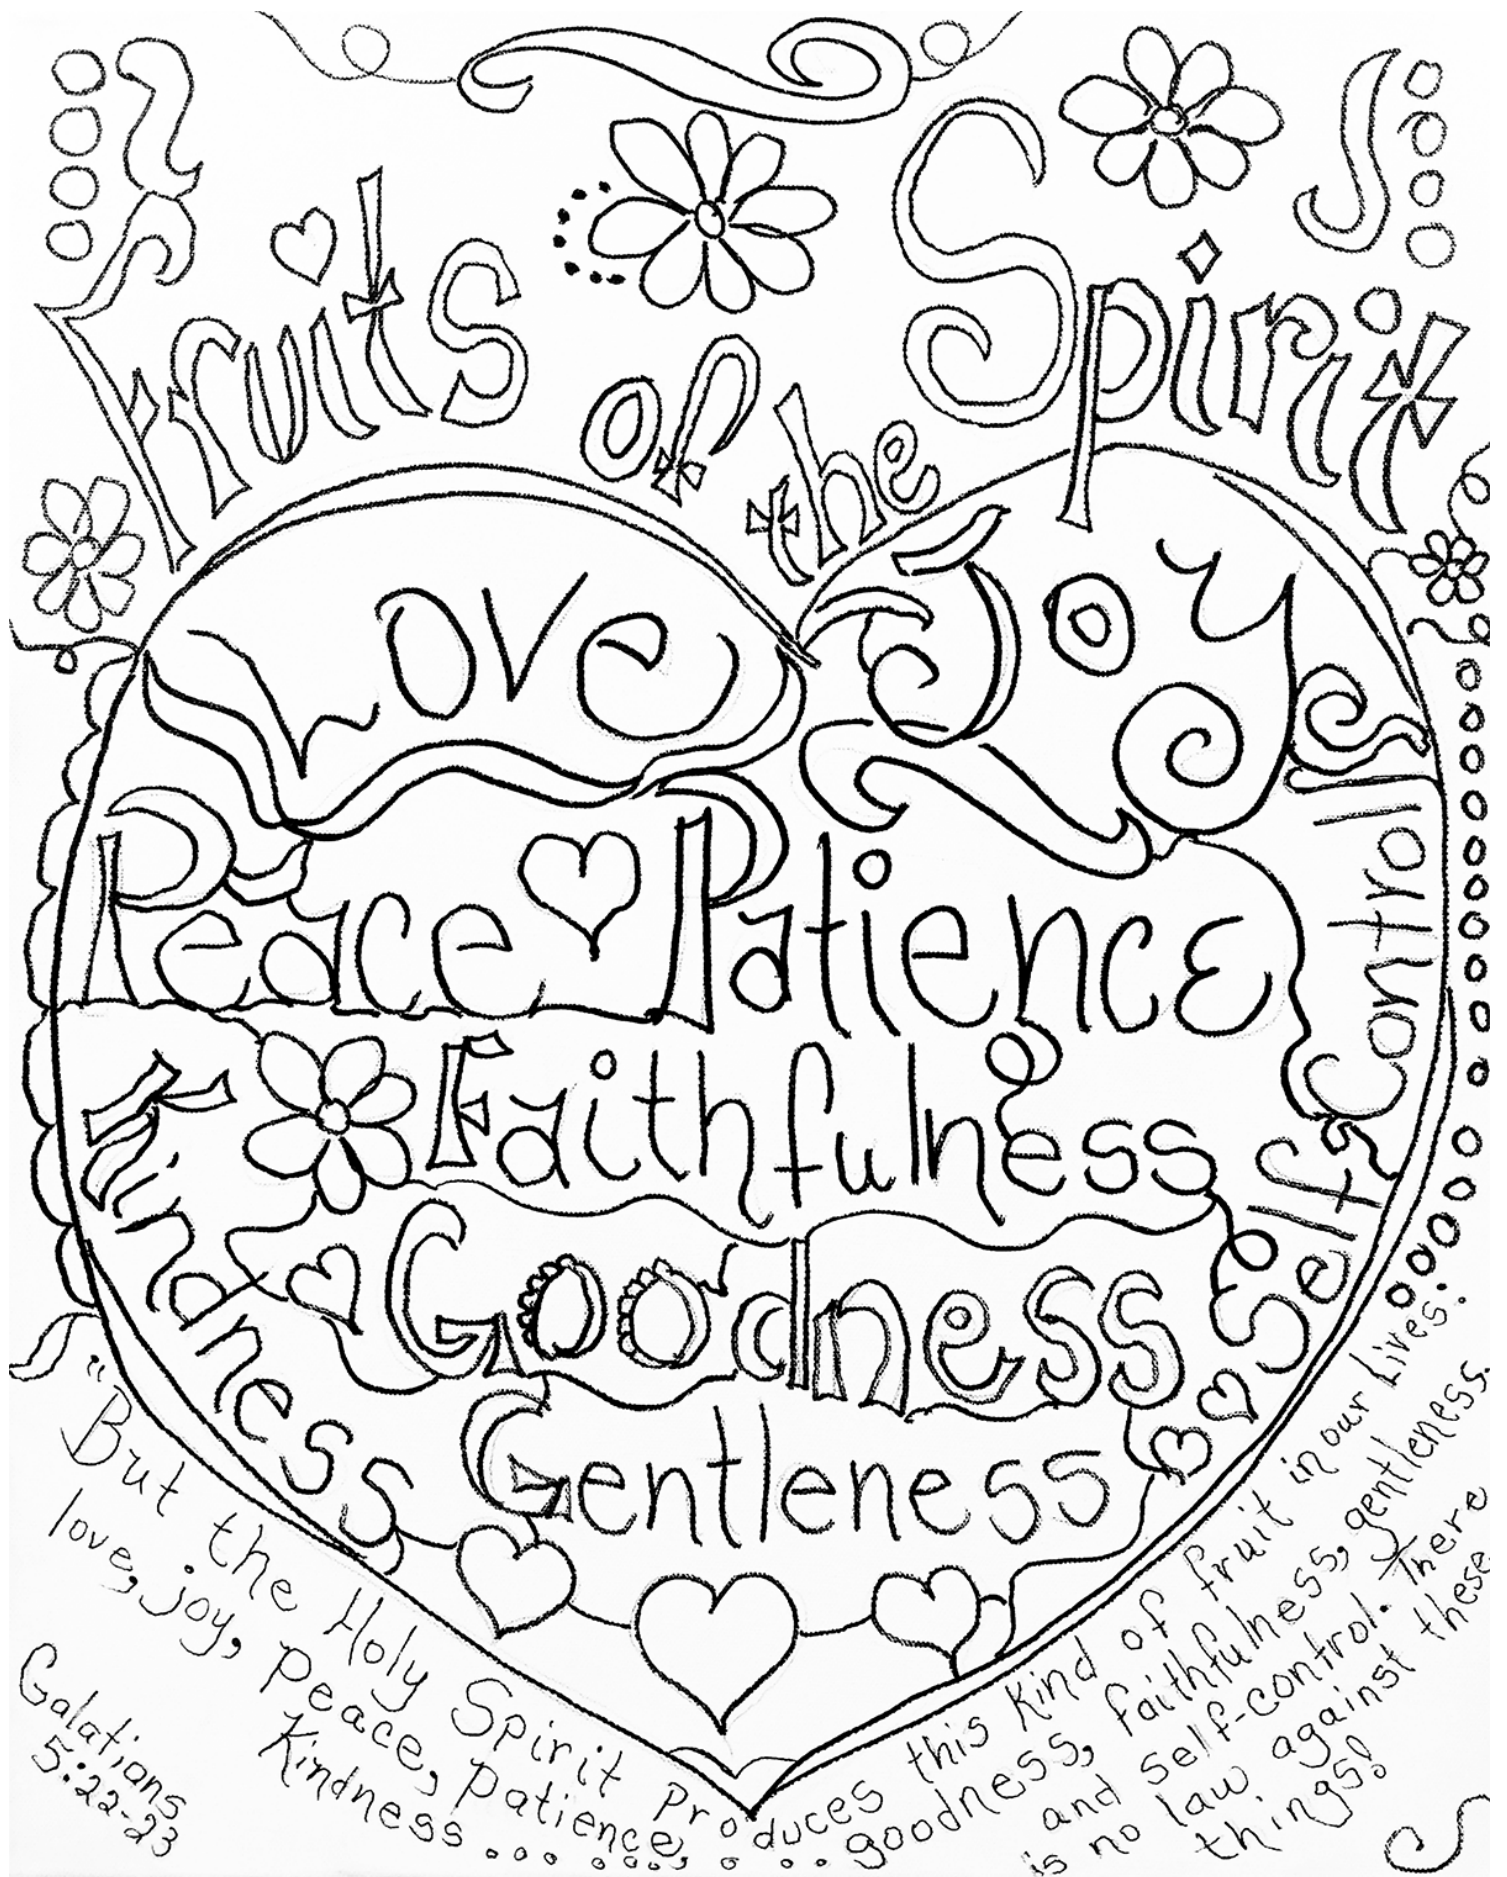 Fruits of the Spirit
Love
Joy
Peace
Patience
Kindness
Faithfulness
Self Control
Goodness
Gentleness
"But the Holy Spirit produces this kind of fruit in our lives:
love, joy, peace, patience,
Kindness.......... goodness, faithfulness, gentleness,
and self-control. There
is no law against these
things!
Galations
5:22-23